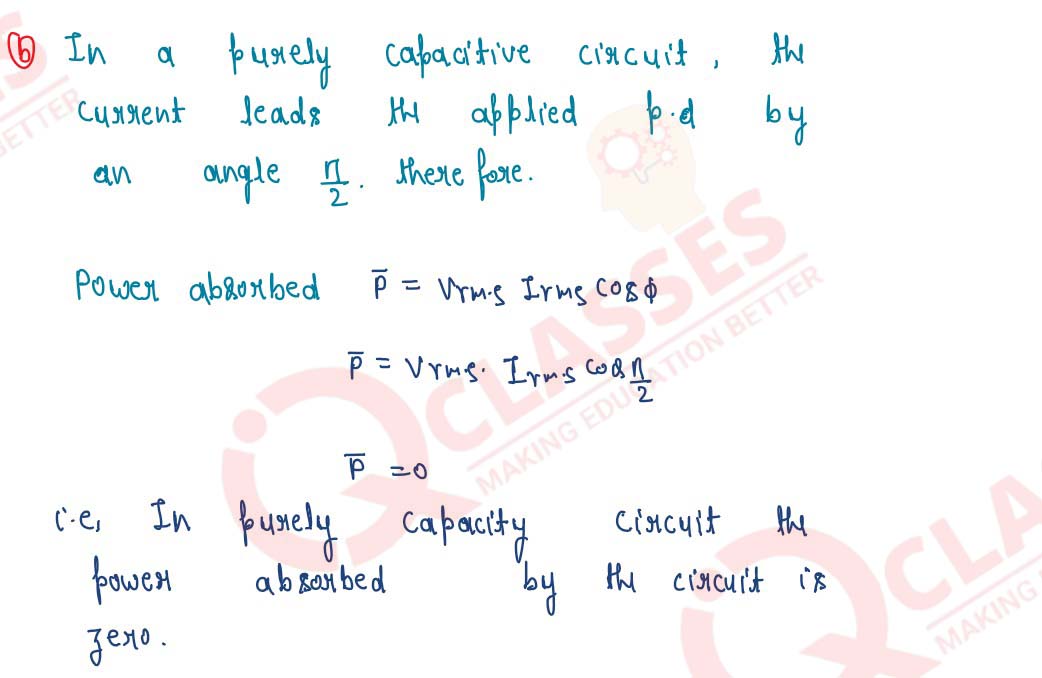 (b) In a purely capacitive circuit, the
current leads the applied p.d by
an angle π/2. there fore.
Power absorbed P̅ = Vrm.s Irms cosϕ
P̅ = Vrms. Irms cos π/2
P̅ = 0
i.e, In purely capacity circuit the
power absorbed by the circuit is
zero.
IQ CLASSES
MAKING EDUCATION BETTER
BETTER
CLA
MAKING